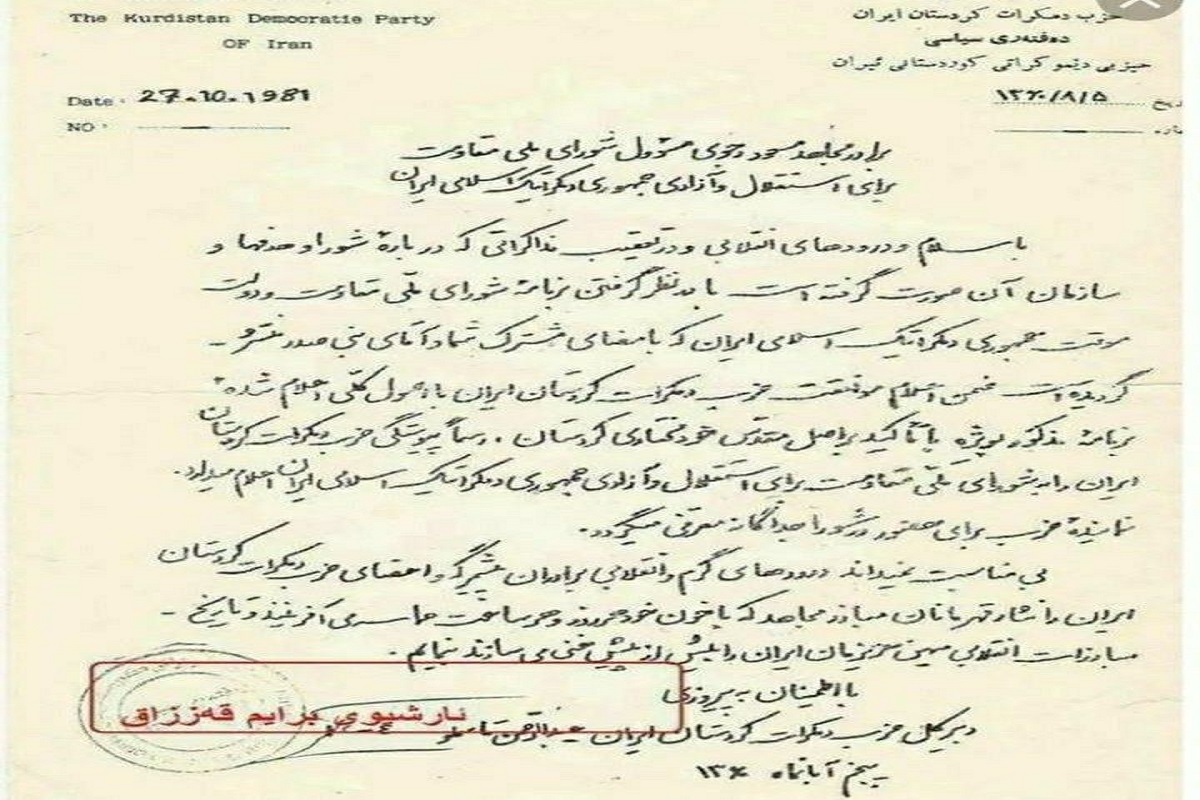 The Kurdistan Democratie Party
OF Iran
Date : 27.10.1981
NO :
حزب دمکرات کردستان ایران
دەفتەری سیاسی
حیزبی دیموکراتی کوردستانی ئیران
۱۳۶۰/۸/۵
برادر مجاهد مسعود رجوی مسؤول شورای ملی مقاومت
برای استقلال و آزادی جمهوری دمکراتیک اسلامی ایران
با سلام و درودهای انقلابی و در تعقیب مذاکراتی که درباره شورا و هدفها و
سازمان آن صورت گرفته است با در نظر گرفتن برنامهٔ شورای ملّی مقاومت و دولت
موقت جمهوری دمکراتیک اسلامی ایران که با امضای مشترک شما و آقای بنی صدر منتشر
گردیده است ضمن اعلام موافقت حزب دمکرات کردستان ایران با اصول کلّی اعلام شده
برنامهٔ مذکور بویژه با تأکید بر اصل مقدس خودمختاری کردستان، رسماً پیوستگی حزب دمکرات کردستان
ایران را به شورای ملّی مقاومت برای استقلال و آزادی جمهوری دمکراتیک اسلامی ایران اعلام میدارد.
نمایندهٔ حزب برای حضور در شورا جداگانه معرفی میگردد.
بی مناسبت نمیداند درودهای گرم و انقلابی برادران پیشمرگه و اعضای حزب دمکرات کردستان
ایران را نثار قهرمانان مبارز مجاهد که با خون خود هر روز و هر ساعت حماسه‌ای آفرینند و تاریخ
مبارزات انقلابی میهن عزیزمان ایران را بیش از پیش غنی می سازند بنمایم.
با اطمینان به پیروزی
دبیر کل حزب دمکرات کردستان ایران عبدالرحمن قاسملو
پنجم آبانماه ۱۳۶۰
ئارشیوی برایم فەززاق